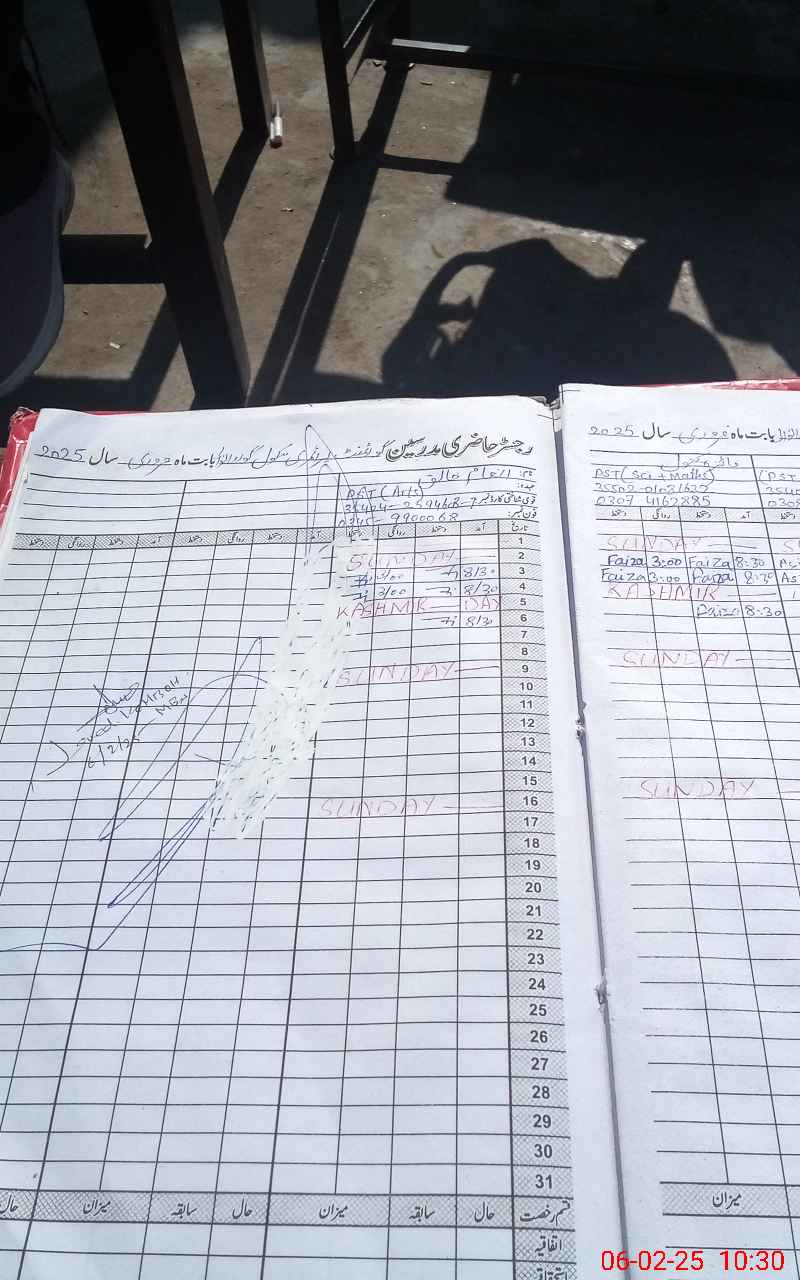 رجسٹر حاضری مدرسین گورنمنٹ پرائمری سکول بابت ماہ فروری سال 2025
نام: انعام خالق
عہدہ: PST (Arts)
قومی شناختی کارڈ نمبر
فون نمبر: 0345-9900068
تاریخ آمد دستخط روانگی دستخط آمد دستخط روانگی دستخط
1
2 SUNDAY
3 8/30 3/00
4 8/30 3/00
5 KASHMIR DAY
6 8/30
7
8
9 SUNDAY
10
11
12
13
14
15
16 SUNDAY
17
18
19
20
21
22
23
24
25
26
27
28
29
30
31
قسم رخصت حال سابقہ میزان حال سابقہ میزان حال
اتفاقیہ
استحقاقیہ
6/2/25
بابت ماہ فروری سال 2025
PST (Sci & Maths)
0307 4162885
آمد دستخط روانگی دستخط
SUNDAY
Faiza 3:00 Faiza 8:30
Faiza 3:00 Faiza 8:30
KASHMIR
Faiza 8:30
SUNDAY
SUNDAY
میزان
06-02-25 10:30